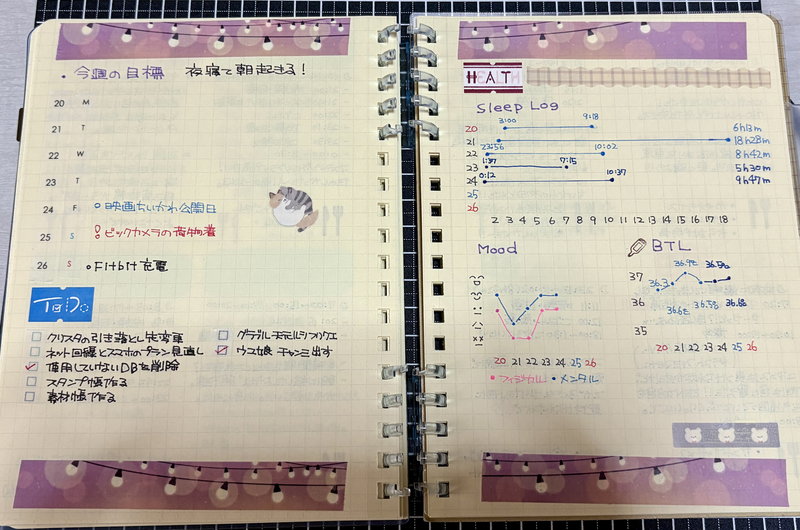 • 今週の目標 夜寝て朝起きる!
20 M
21 T
22 W
23 T
24 F ○映画ちいかわ公開日
25 S ビックカメラの荷物着
26 S ○Fitbit充電
ToDo
クリスタの引き落とし先変更
ネット回線とスマホのプラン見直し
使用していないDBを削除
スタンプ帳作る
素材帳作る
ウマ娘 チャンミ出す
HAT
Sleep Log
20 3:00 9:18 6h13m
21 18h28m
22 23:56 10:02 8h42m
23 1:37 7:15 5h30m
24 0:12 10:37 9h47m
25
26
2 3 4 5 6 7 8 9 10 11 12 13 14 15 16 17 18
Mood
20 21 22 23 24 25 26
•フィジカル •メンタル
BTL
37 36.3 36.5
36 36.6 36.5 36.6
35
20 21 22 23 24 25 26